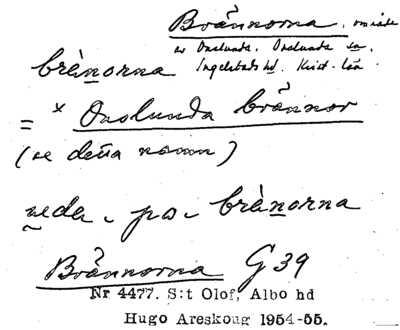 Brånnorna, område
av Onslunda. Onslunda sn.
Ingelstads hd. Krist. län
brànorna
= × Onslunda brånnor
(se detta namn)
neda - på - brànorna
Brånnorna G 39
Nr 4477. S:t Olof, Albo hd
Hugo Areskoug 1954-55.